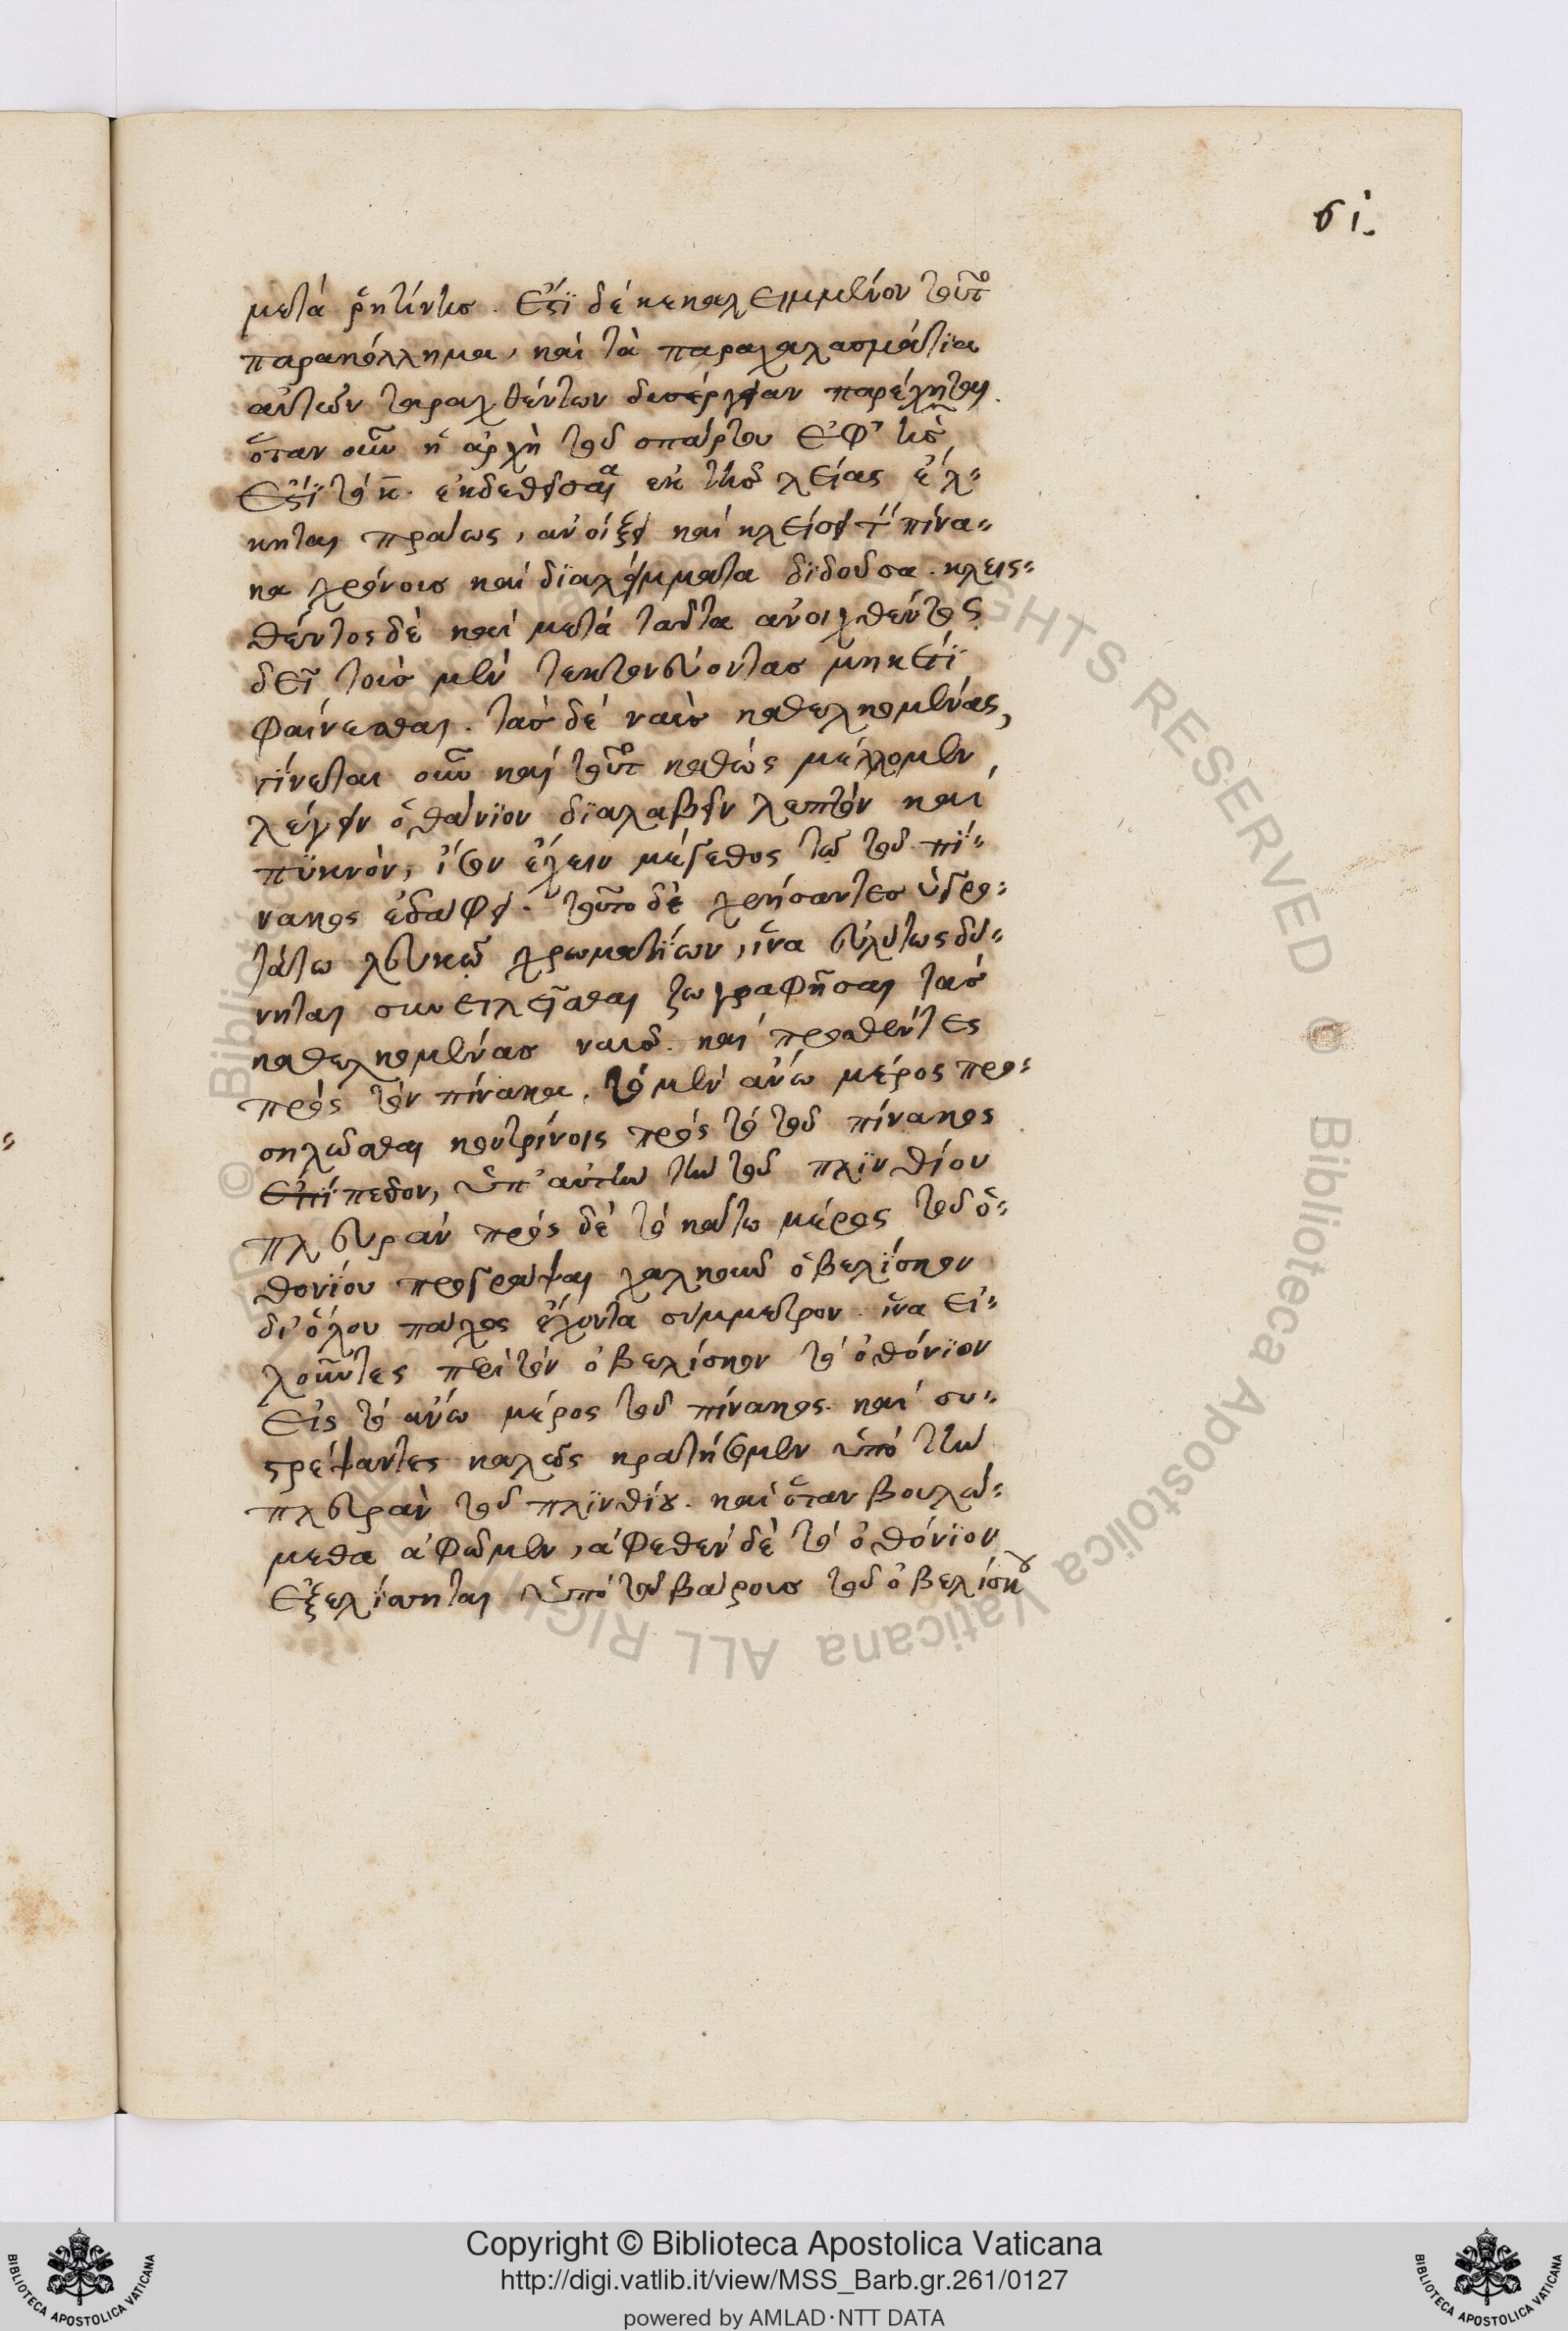 61.
μετὰ ῥητίνης. ἔστι δὲ κεκαλειμμένον τοῦτο
παρακόλλημα, καὶ τὰ παραχαλασμάτια
αὐτῶν ταραχθέντων δυσέργειαν παρέχηται.
ὅταν οὖν ἡ ἀρχὴ τοῦ σπάρτου ἐφ' ἧς
ἐστὶ τὸ κ. ἐκδεθεῖσα ἐκ τῆς λείας ἕλ-
κηται πράως, ἀνοίξει καὶ κλείσει τὸν πίνα-
κα χρόνοις καὶ διαλείμματα διδοῦσα. κλεις-
θέντος δὲ καὶ μετὰ ταῦτα ἀνοιχθέντος
δεῖ τοὺς μὲν τεκτονεύοντας μηκέτι
φαίνεσθαι. τὰς δὲ ναῦς καθελκομένας,
γίνεται οὖν καὶ τοῦτο καθὼς μέλλομεν
λέγειν ὀθάνιον διαλαβεῖν λεπτὸν καὶ
πυκνὸν, ἴσον ἔχειν μέγεθος τῷ τοῦ πί-
νακος ἐδάφει. τοῦτο δὲ χρήσαντες ὑδρο-
τάτω λευκῷ χρωματίων, ἵνα εὐλύτως δύ-
νηται συνειλεῖσθαι ζωγραφῆσαι τὰς
καθελκομένας ναῦς. καὶ προσθέντες
πρὸς τὸν πίνακα. τὸ μὲν ἄνω μέρος προ-
σηλῶσθαι κεντρίνοις πρὸς τὸ τοῦ πίνακος
ἐπίπεδον, ὑπ' αὐτὴν τὴν τοῦ πλινθίου
πλευρὰν πρὸς δὲ τὸ κάτω μέρος τοῦ ὀ-
θονίου προσράψαι χαλκοῦν ὀβελίσκον
δι' ὅλου πάχος ἔχοντα σύμμετρον. ἵνα εἰ-
λοῦντες περὶ τὸν ὀβελίσκον τὸ ὀθόνιον
εἰς τὸ ἄνω μέρος τοῦ πίνακος. καὶ συ-
στρέψαντες καλῶς κρατήσομεν ὑπὸ τὴν
πλευρὰν τοῦ πλινθίου. καὶ ὅταν βουλώ-
μεθα ἀφῶμεν, ἀφεθὲν δὲ τὸ ὀθόνιον
ἐξελίσσηται ὑπὸ τοῦ βάρους τοῦ ὀβελίσκου
© Biblioteca Apostolica Vaticana ALL RIGHTS RESERVED
Copyright © Biblioteca Apostolica Vaticana
http://digi.vatlib.it/view/MSS_Barb.gr.261/0127
powered by AMLAD·NTT DATA
BIBLIOTECA APOSTOLICA VATICANA
BIBLIOTECA APOSTOLICA VATICANA